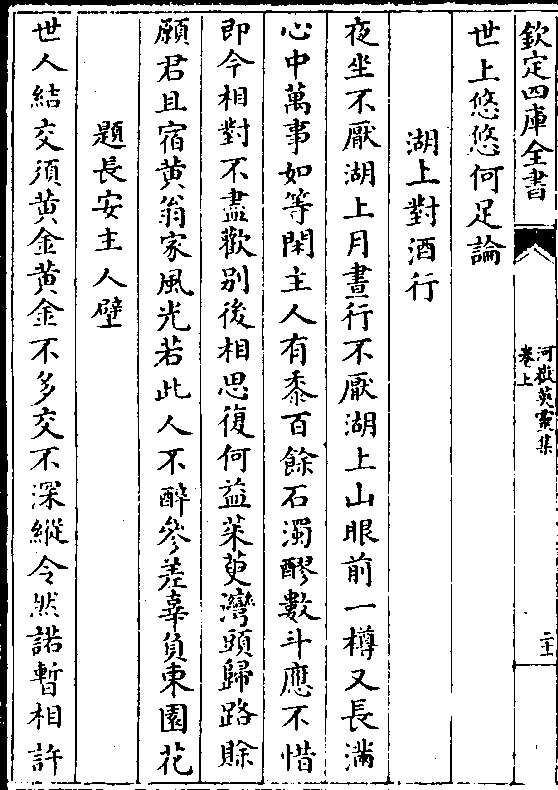 欽定四庫全書
河嶽英靈集
卷上
二十
世上悠悠何足論
湖上對酒行
夜坐不厭湖上月晝行不厭湖上山眼前一樽又長滿
心中萬事如等閑主人有黍百餘石濁醪數斗應不惜
即今相對不盡歡别後相思復何益茱萸灣頭歸路賖
願君且宿黄翁家風光若此人不醉參差辜負東園花
題長安主人壁
世人結交須黄金黄金不多交不深縱令然諾暫相許